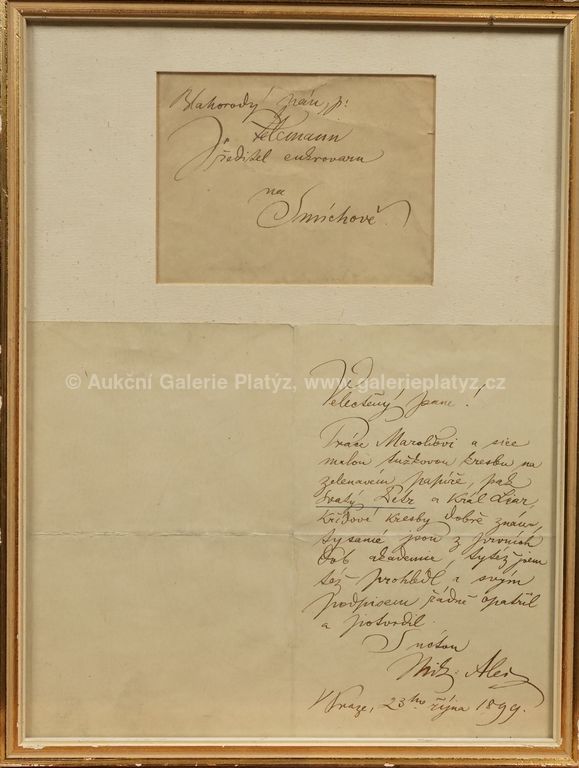 Blahorodý pán, p:
Pelcmann
ředitel cukrovaru
na
Smíchově.
© Aukční Galerie Platýz, www.galerieplatyz.cz
Velectěný pane!
Práce Maroldovi a sice
malou tužkovou kresbu na
zelenavém papíře, pak
Svatý Petr a Král Lear,
křídové kresby dobře znám,
ty samé jsou z prvních
dob akademie, tytéž jsem
též prohlédl a svým
podpisem řádně opatřil
a potvrdil.
S úctou
Mik: Aleš
V Praze, 23ho října 1899.